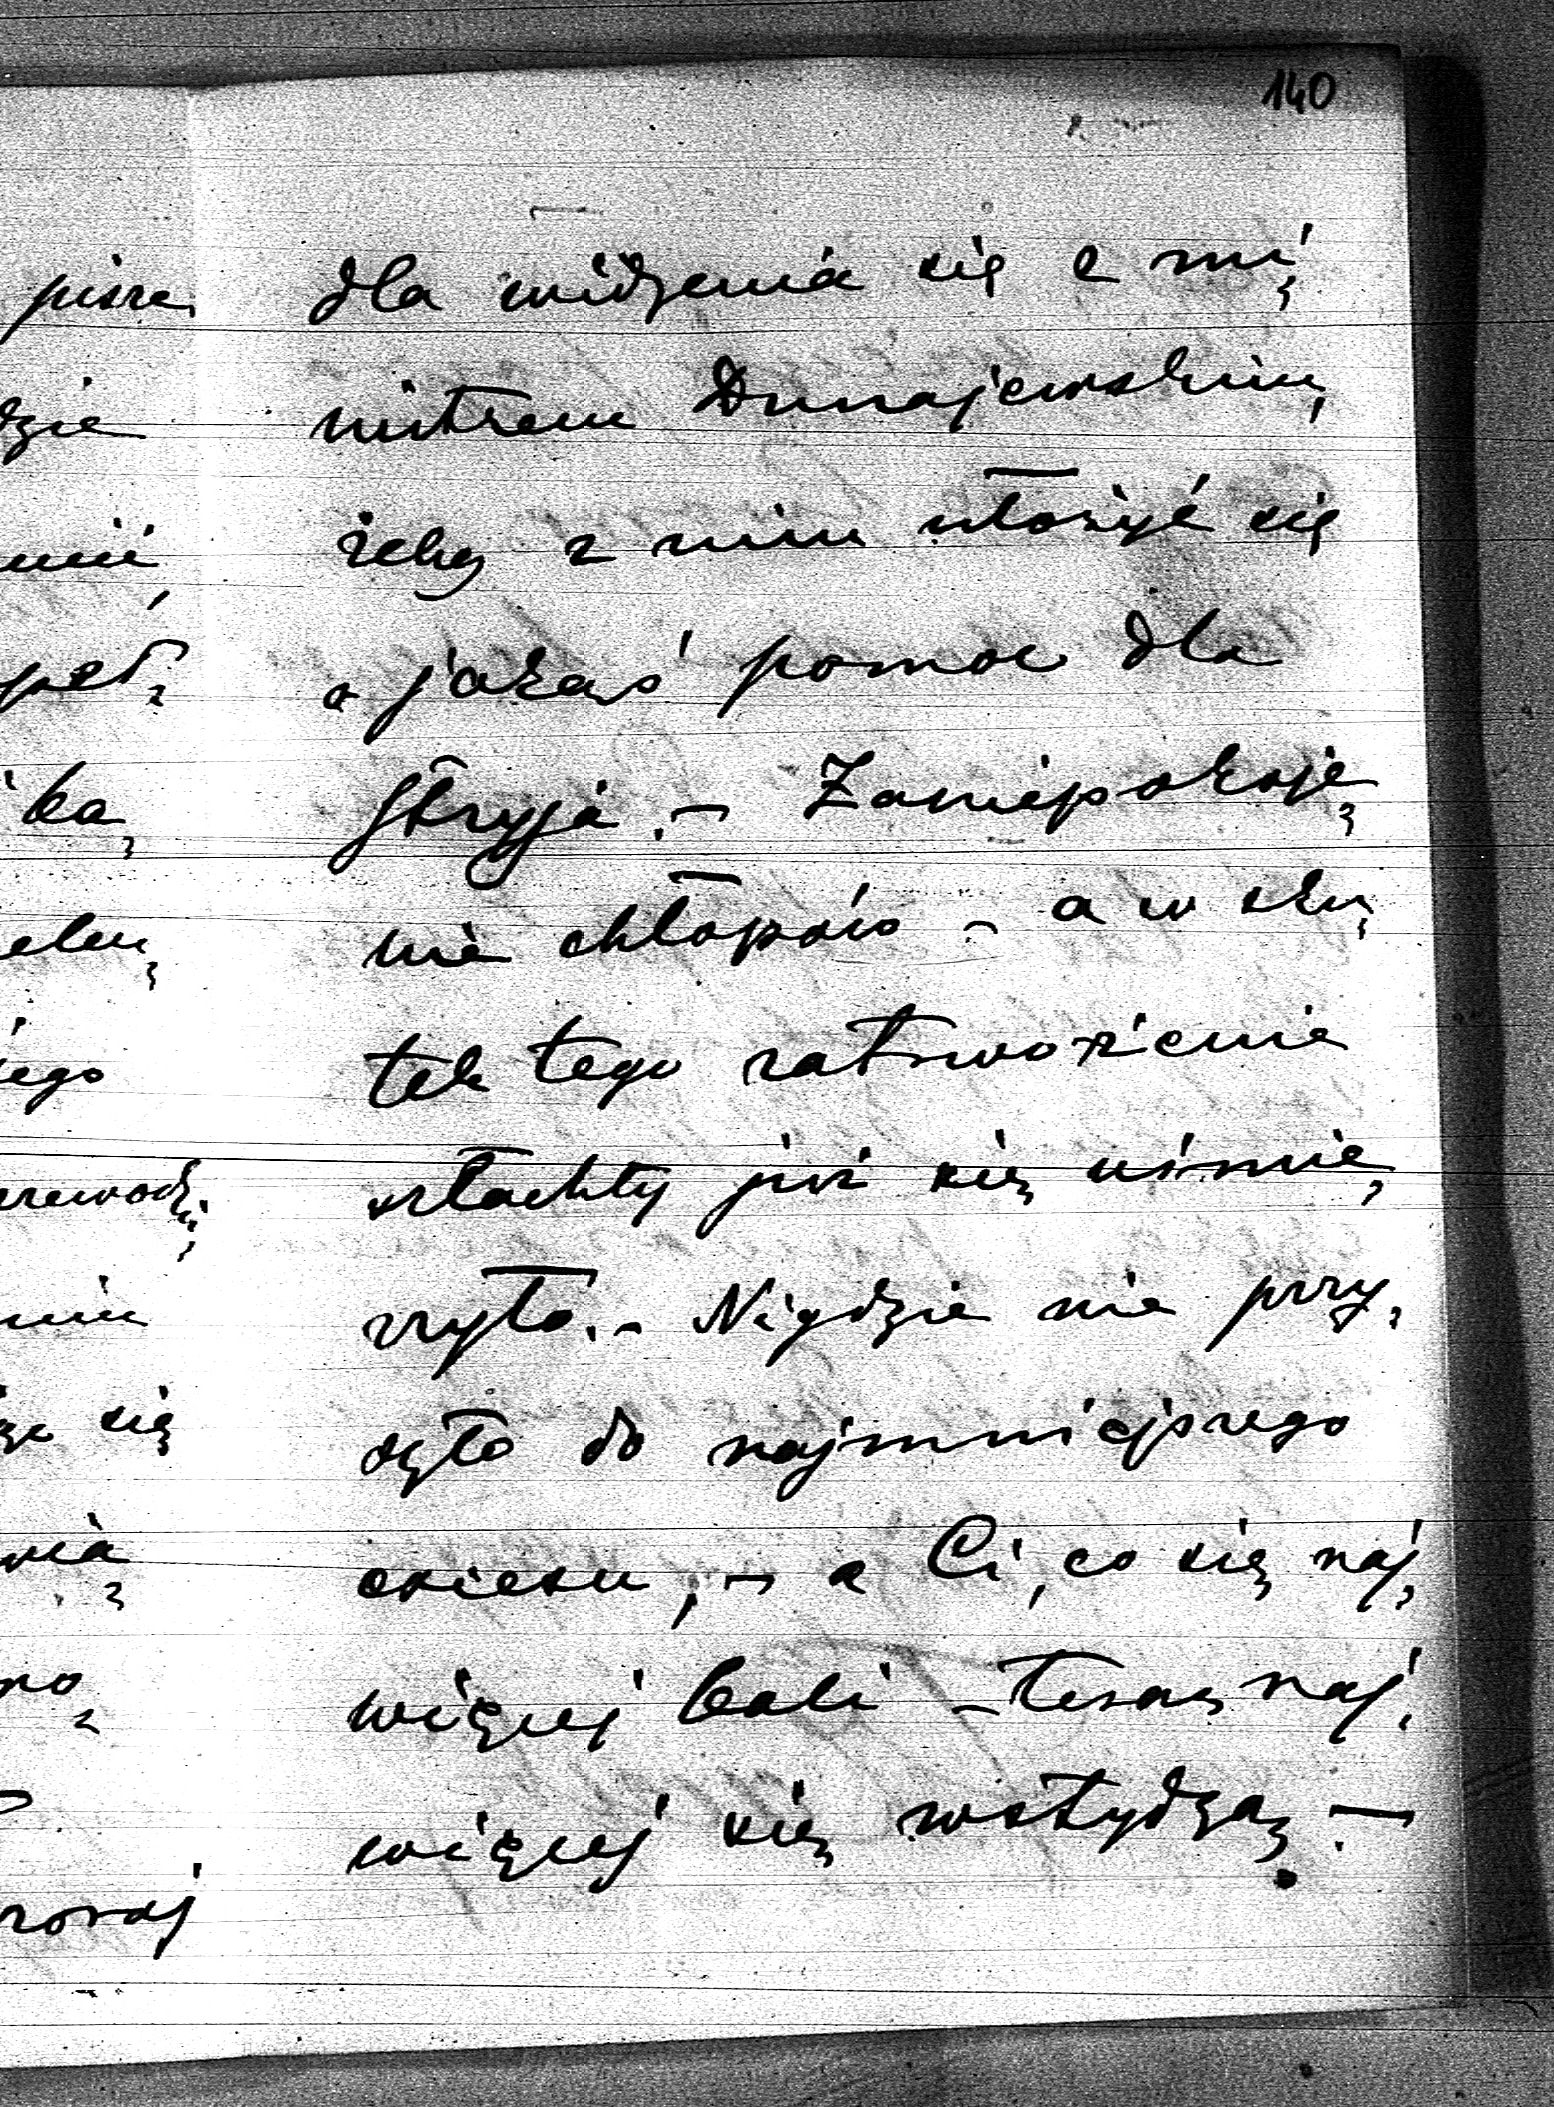 140
dla widzenia się z mi,
nistrem Dunajewskim,
żeby z nim ułożyć się
o jakąś pomoc dla
Stryja. – Zaniepokoje,
nie chłopów – a w sku,
tek tego zatrwożenie
szlachty już się uśmie,
rzyło. – Nigdzie nie przy,
szło do najmniejszego
excesu, – a Ci, co się naj,
więcej bali – teraz naj,
więcej się wstydzą. –
pisze
dzie
ką,
iego
się